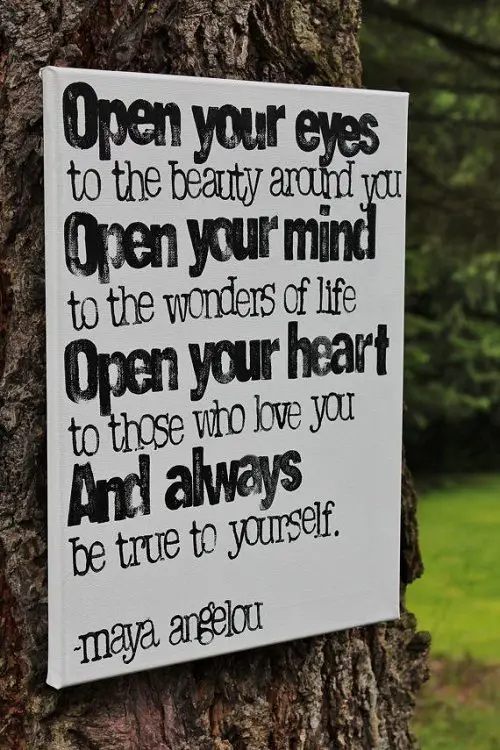 Open your eyes
to the beauty around you
Open your mind
to the wonders of life
Open your heart
to those who love you
And always
be true to yourself.
-maya angelou